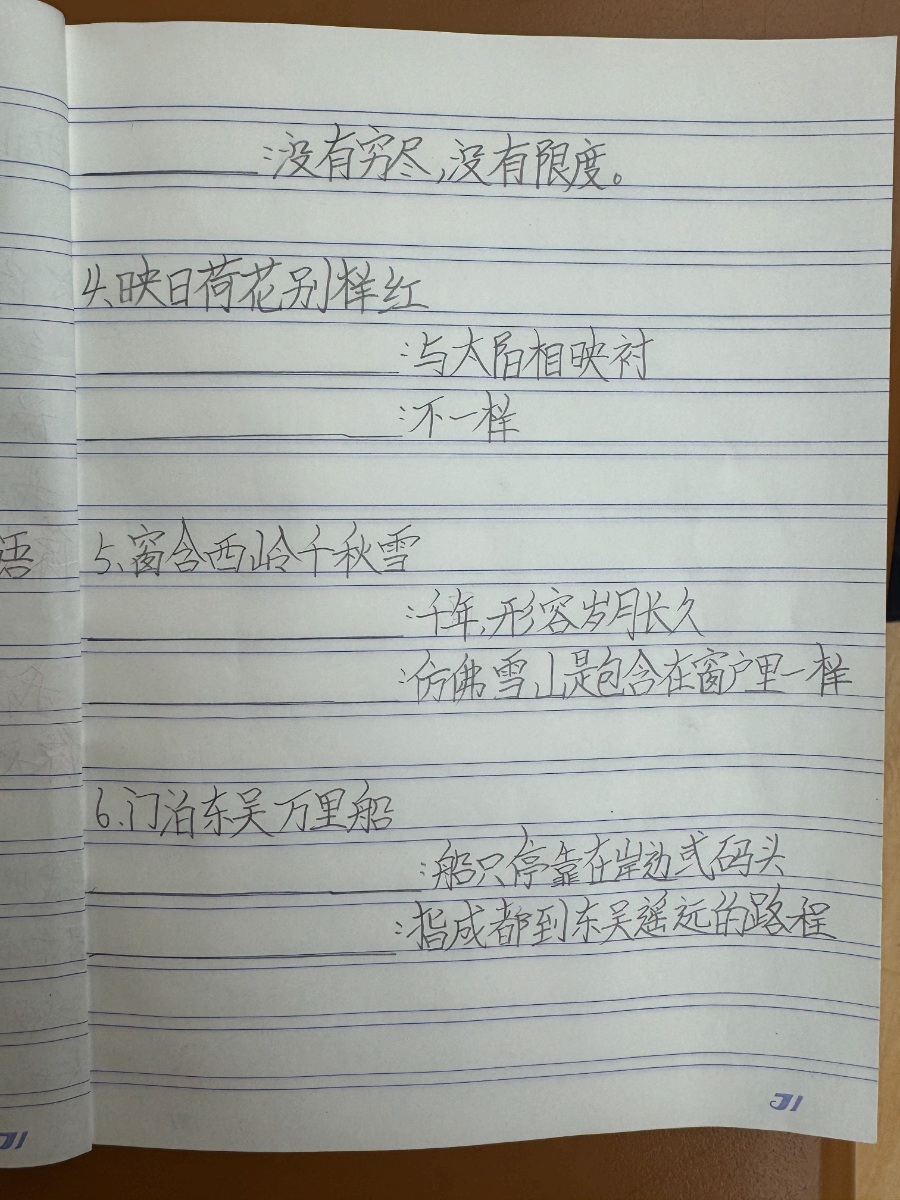 ______:没有穷尽,没有限度。
4、映日荷花别样红
______:与太阳相映衬
______:不一样
语
5、窗含西岭千秋雪
______:千年,形容岁月长久
______:仿佛雪山是包含在窗户里一样
6、门泊东吴万里船
______:船只停靠在岸边或码头
______:指成都到东吴遥远的路程